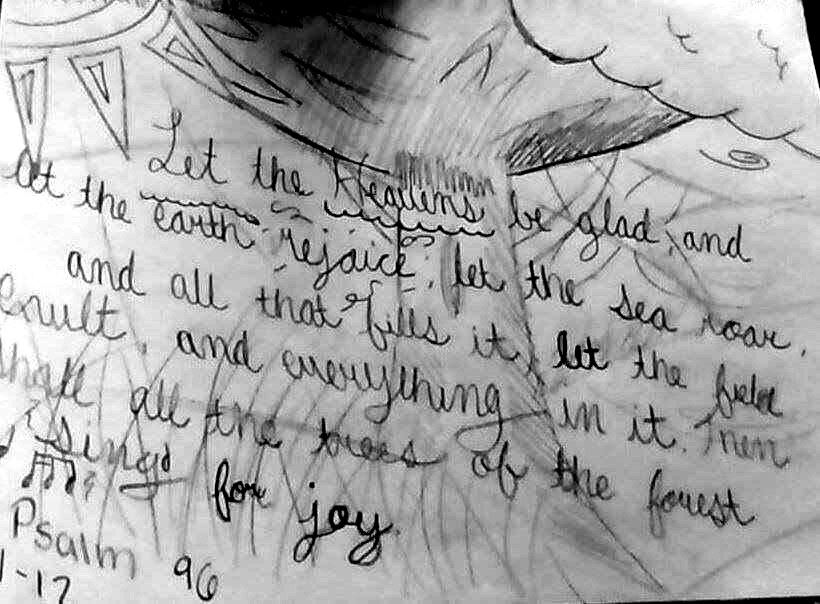 Let the Heavens be glad, and
let the earth rejoice; let the sea roar,
and all that fills it; let the field
exult, and everything in it. Then
shall all the trees of the forest
sing for joy.
Psalm 96
1-12